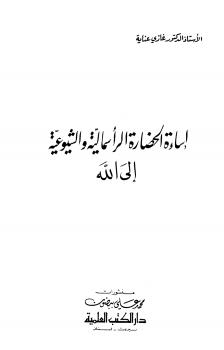 الأستاذ الدكتور غازي عناية
إساءة الحضارة الرأسمالية والشيوعية
إلى الله
منشورات
محمد علي بيضون
دار الكتب العلمية
بيروت - لبنان